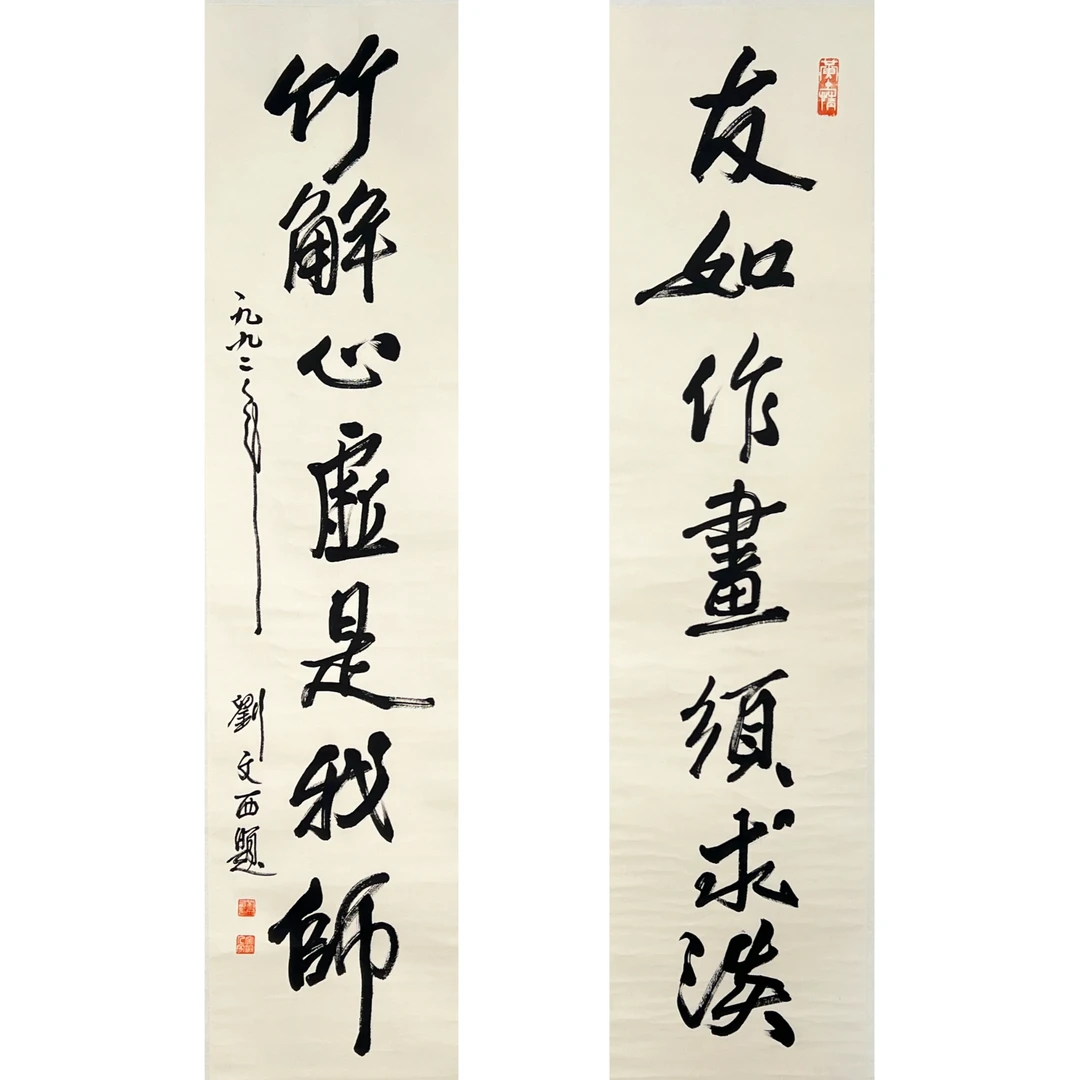 友如作畫須求淡
竹解心虛是我師
一九九二年
劉文西題